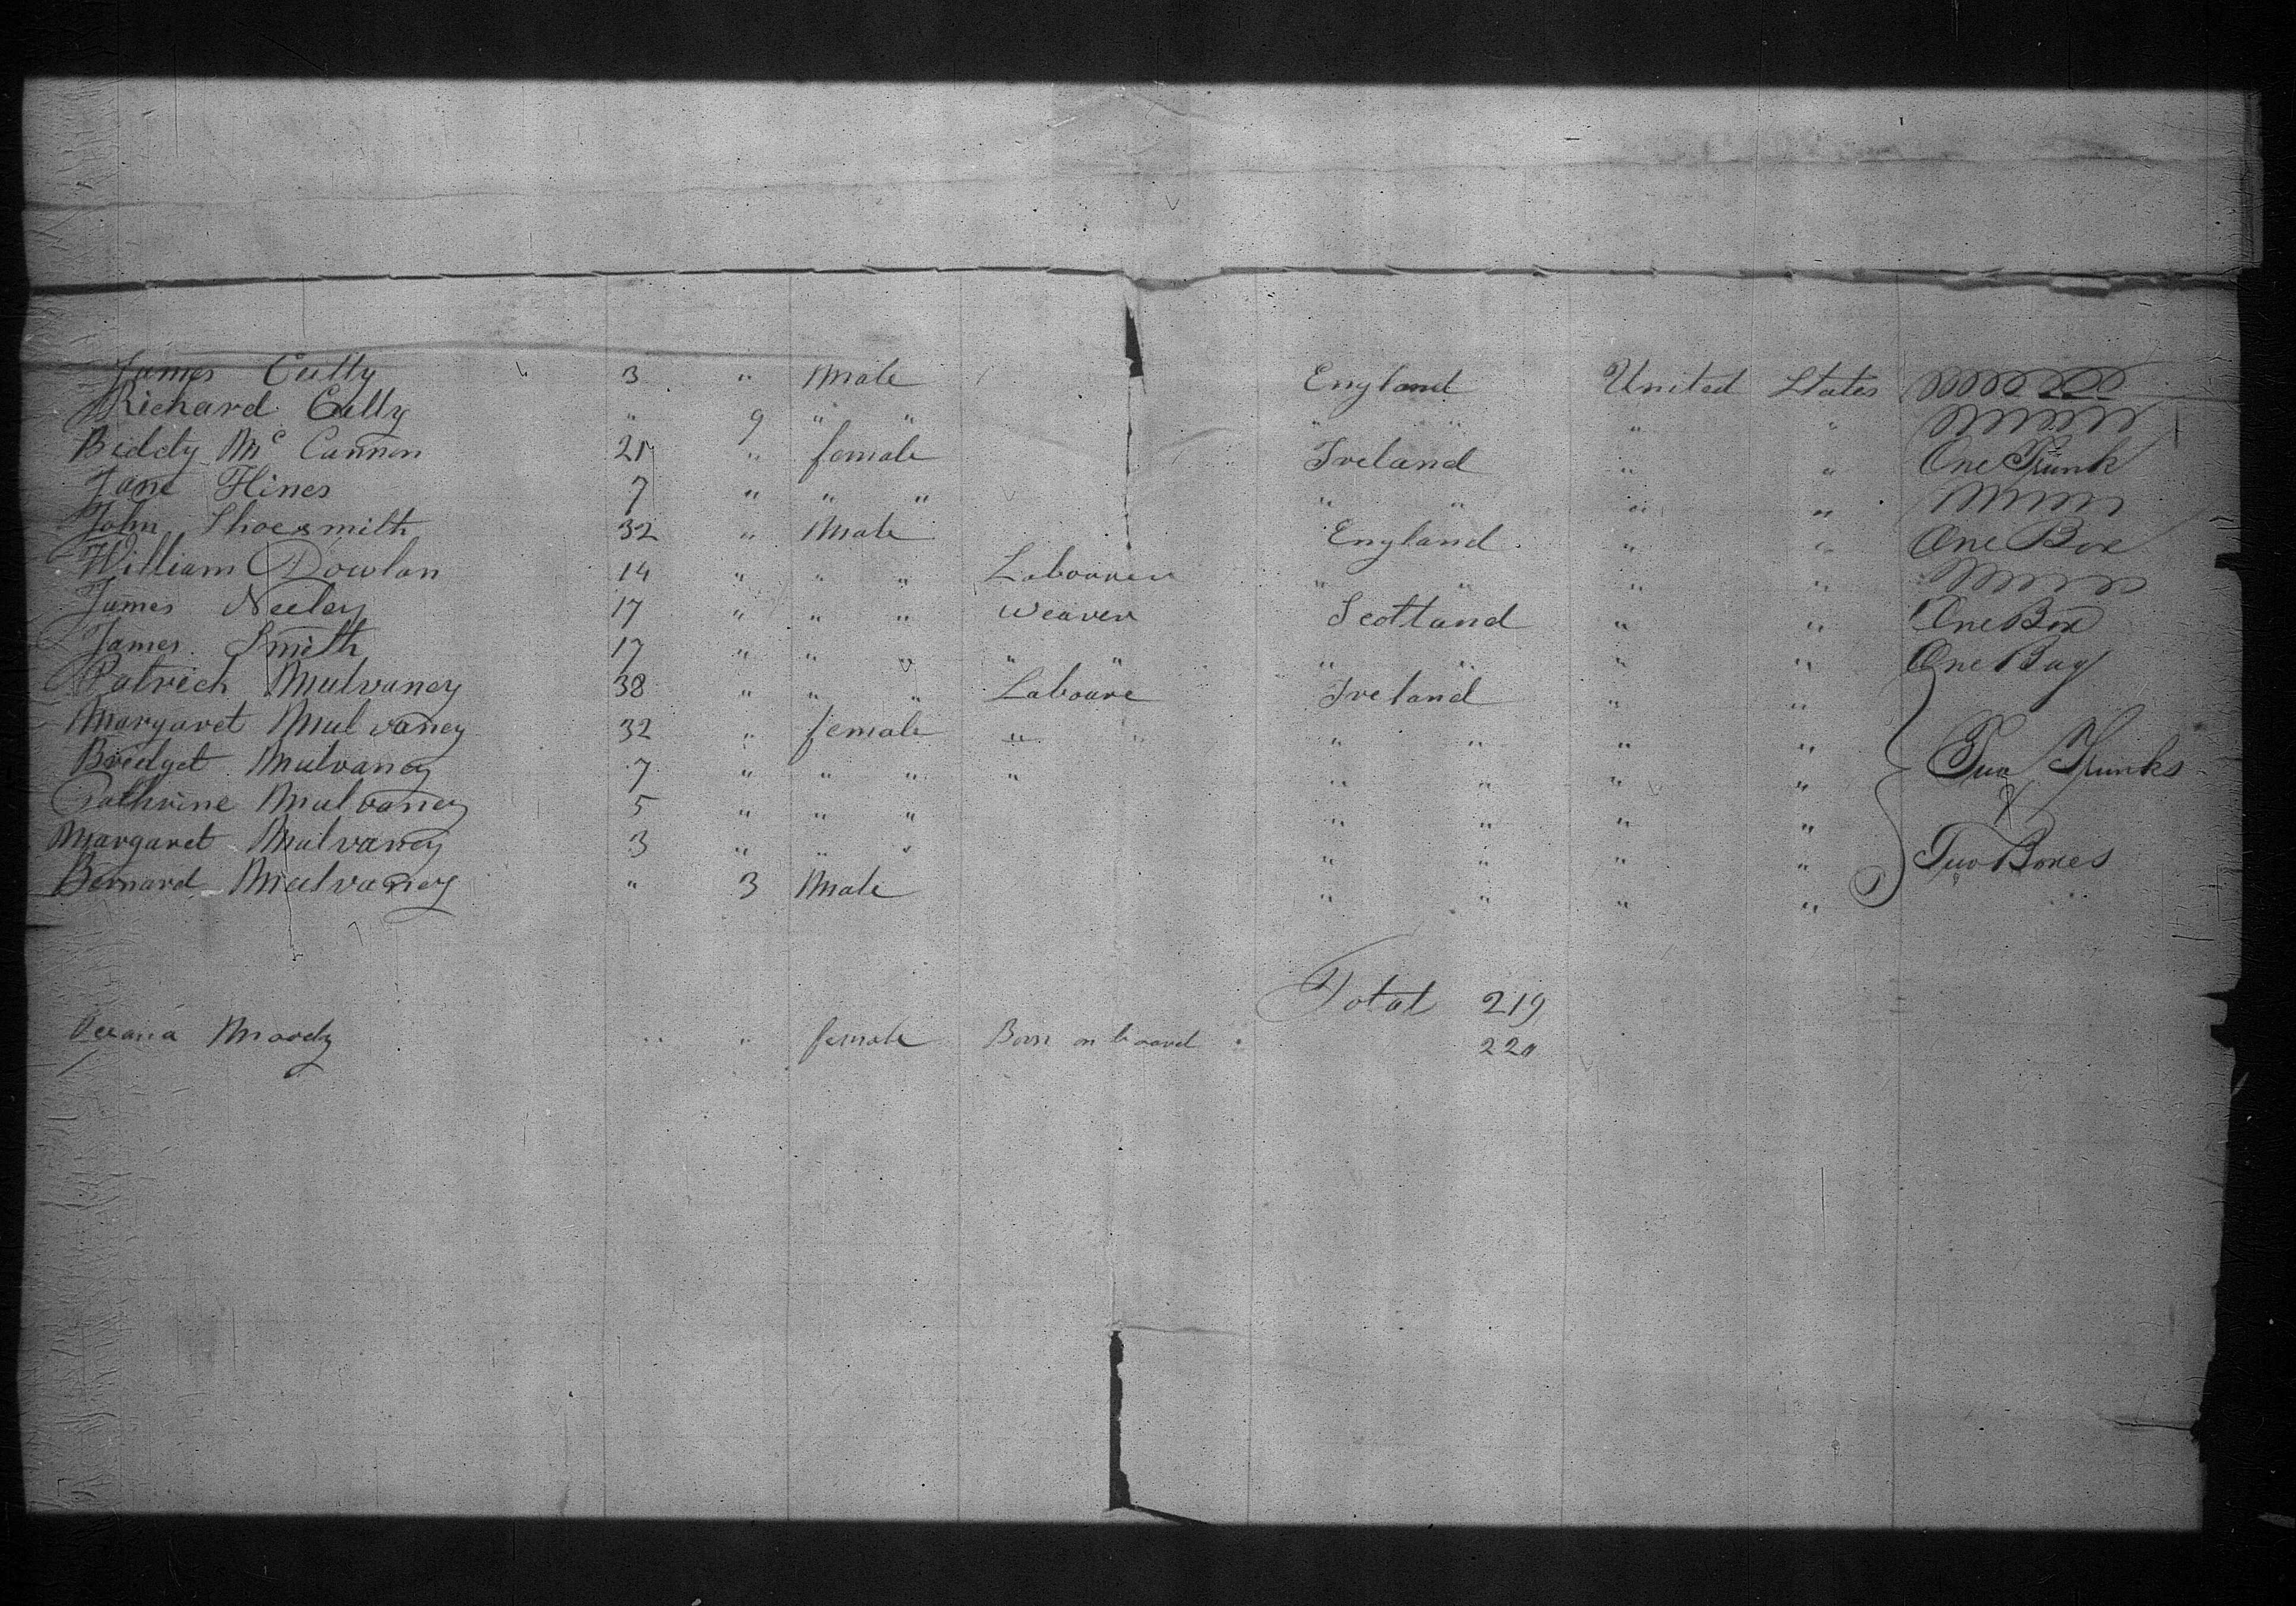 James Cully 3 " Male England United States
Richard Cully " 9 " " " " " "
Biddy Mc Cannon 21 " female Ireland " " One Trunk
Jane Hines 7 " " " " " " "
John Shoesmith 32 " Male England " " One Box
William Dowlan 14 " " " Labourer " " " "
James Neeley 17 " " " Weaver Scotland " " One Box
James Smith 17 " " " " " " " " " One Bag
Patrick Mulvaney 38 " " " Laboure Ireland " "
Margaret Mulvaney 32 " female " " " " " "
Bridget Mulvaney 7 " " " " " " " " Two Trunks
Cathrine Mulvaney 5 " " " " " " " &
Margaret Mulvaney 3 " " " " " " " Two Boxes
Bernard Mulvaney " 3 Male " " " "
Total 219
Moody " " female Born on board 220